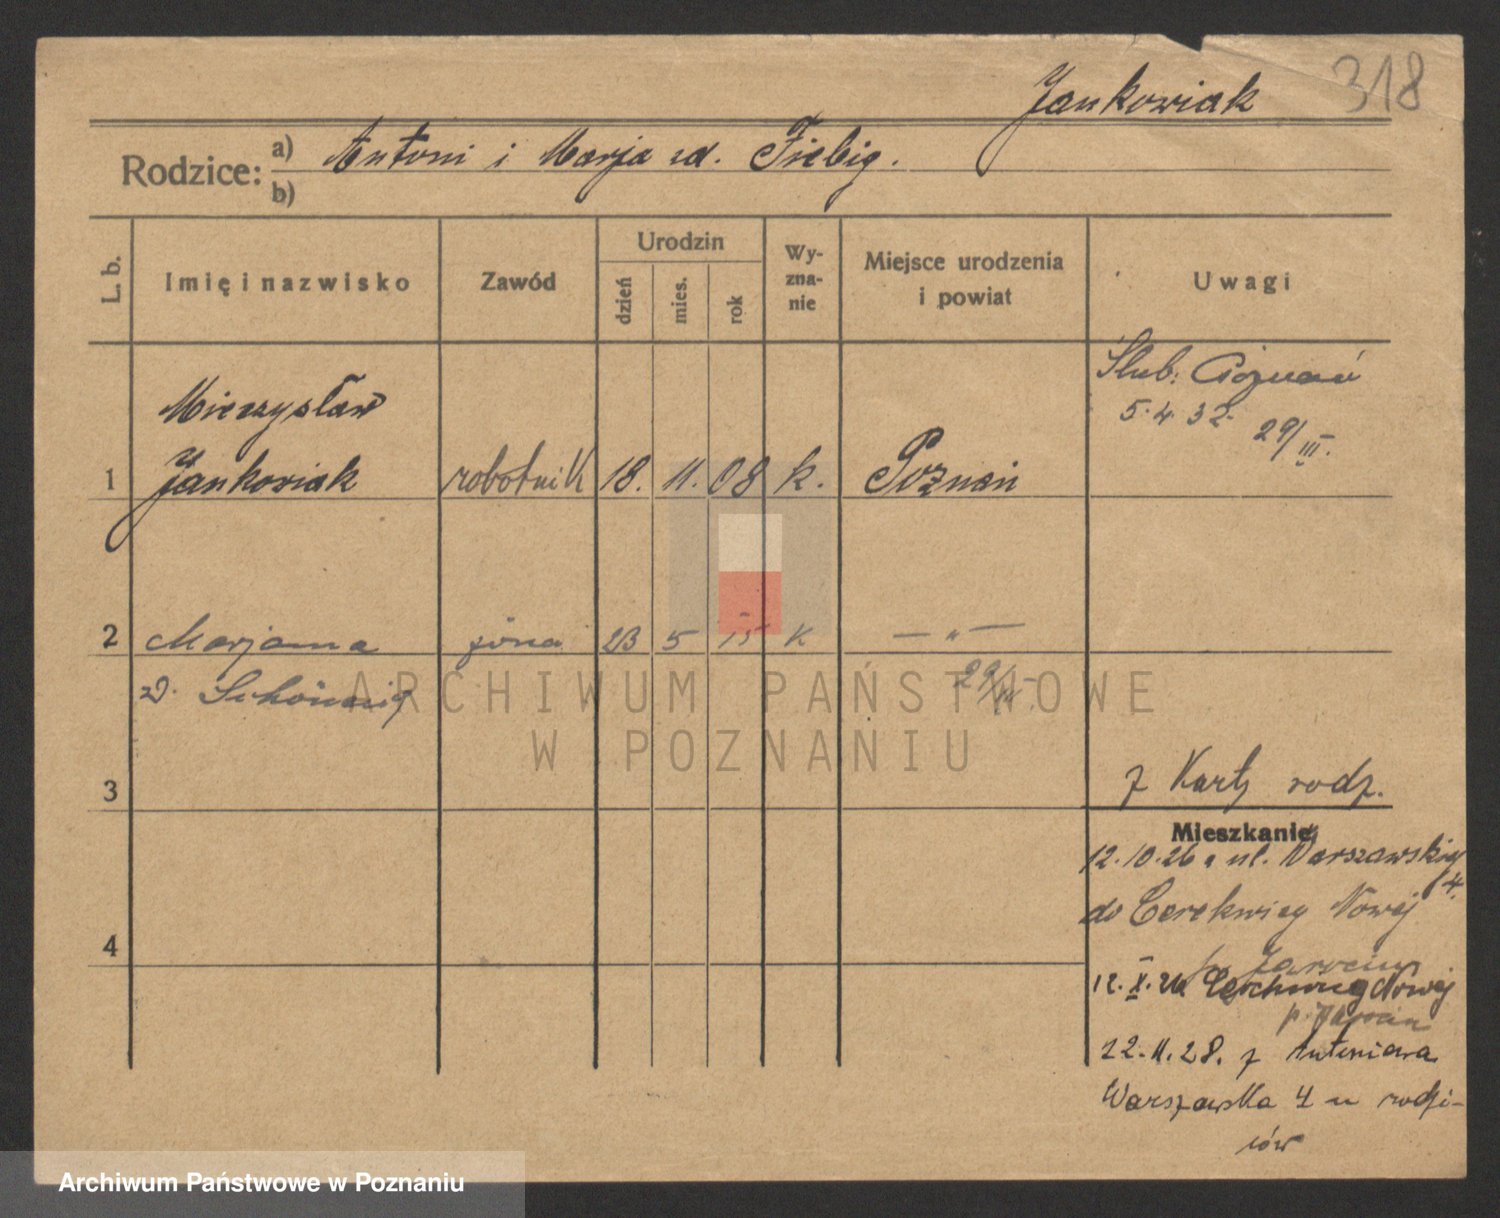 Jankowiak 318
Rodzice: a) Antoni i Marja zd. Fiebig.
b)
L. b.
Imię i nazwisko
Zawód
Urodzin
dzień
mies.
rok
Wy-
zna-
nie
Miejsce urodzenia
i powiat
Uwagi
Mieczysław
1 Jankowiak robotnik 18. 11. 08 k. Poznań
Ślub: Poznań
5.4.32.
29/III.
2 Marjanna żona 23 5 15 K — „ —
zd.
29/III
ARCHIWUM PAŃSTWOWE
W POZNANIU
3
z Karty rodz.
Mieszkanie
12.10.26 z ul. Warszawskiej
4.
do Cerekwicy Nowej
p. Jarocin
12.X.26 Nowej
p. Jarocin
4
22.11.28. z
Warszawska 4 u rodzi-
ców
Archiwum Państwowe w Poznaniu